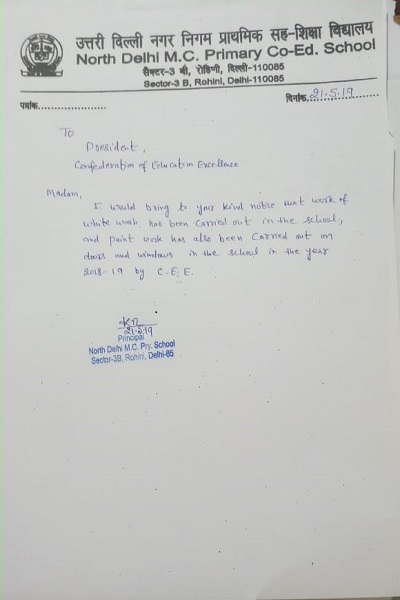 उत्तरी दिल्ली नगर निगम प्राथमिक सह-शिक्षा विद्यालय
North Delhi M.C. Primary Co-Ed. School
सैक्टर-3 बी, रोहिणी, दिल्ली-110085
Sector-3 B, Rohini, Delhi-110085
पत्रांक.....................
दिनांक..21.5.19
To
President,
Confederation of Education Excellence
Madam,
I would bring to your kind notice that work of
white wash has been carried out in the school,
and paint work has also been carried out on
doors and windows in the school in the year
2018-19 by C.E.E.
21.5.19
Principal
North Delhi M.C. Pry. School
Sector-3B, Rohini, Delhi-85